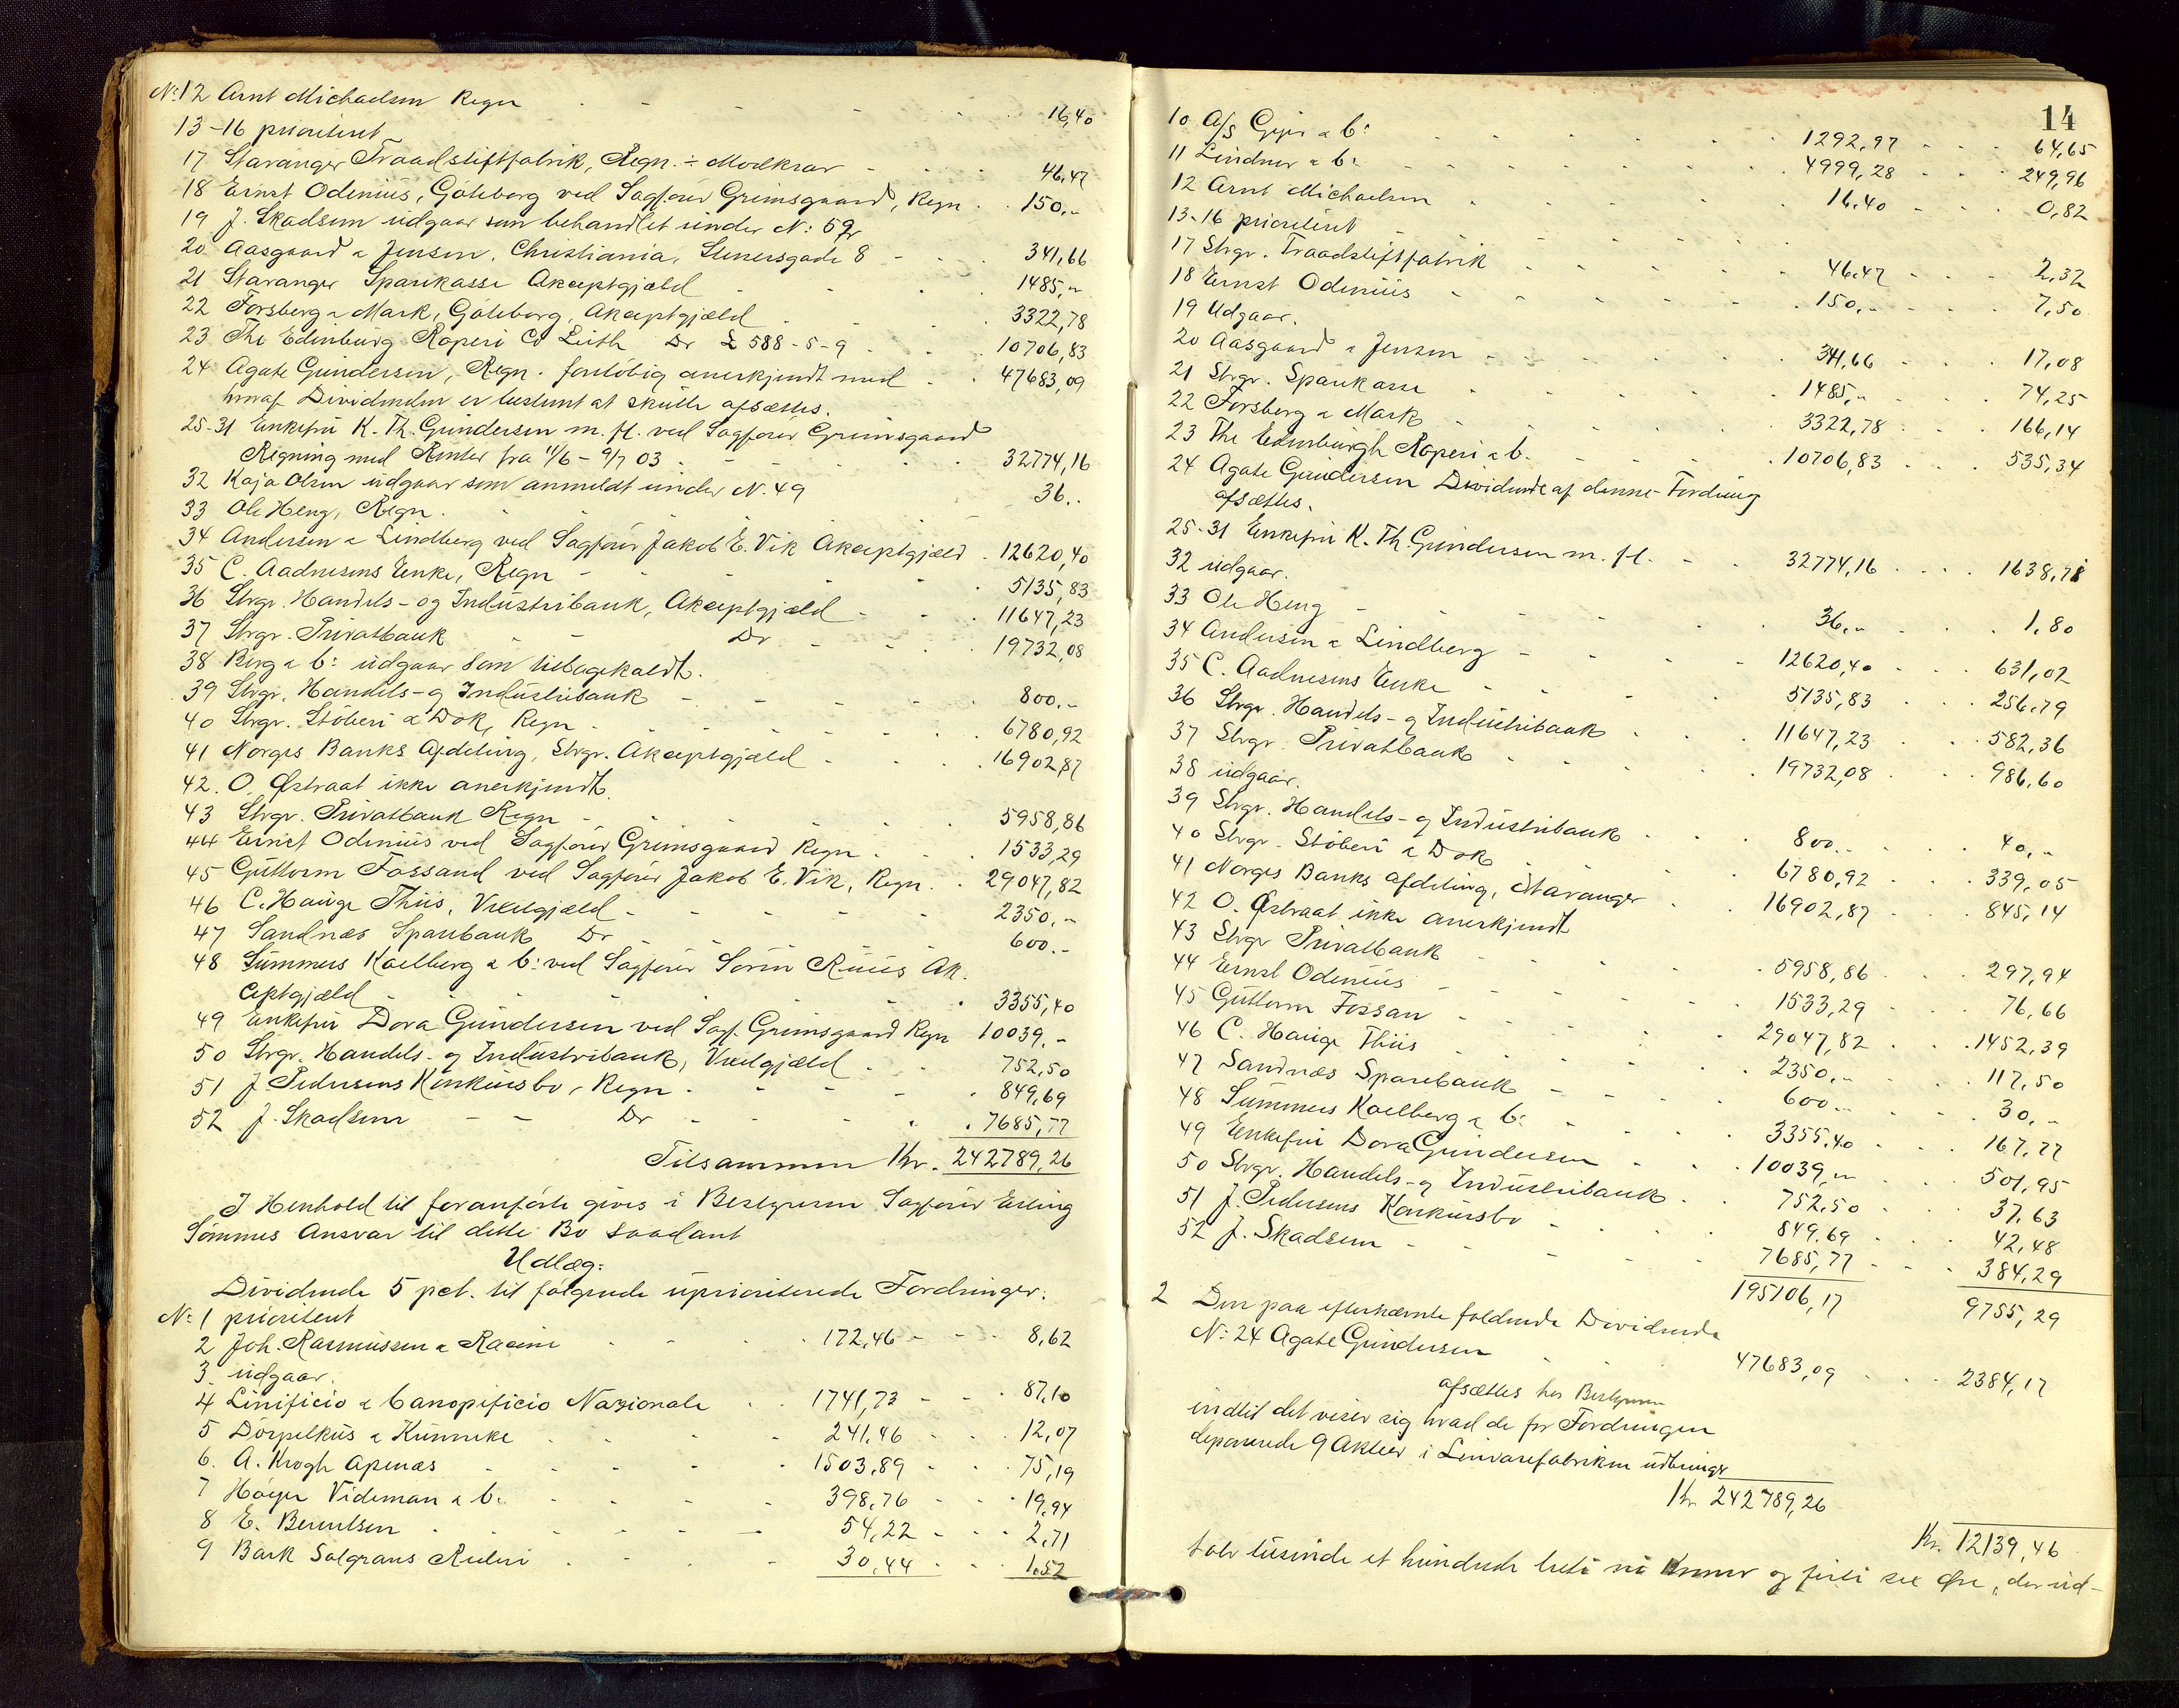 No 12 Arnt Michaelsen Regn 16,40
13-16 prioritert
17 Stavanger Traadstiftfabrik, Regn. ÷ Modkrav 46,47
18 Ernst Odenius, Göteborg ved Sagfører Grimsgaard, Regn. 150,-
19 J. Skadsem udgaar som behandlet under No: 52
20 Aasgaard & Jensen, Christiania, Stenersgade 8 341,66
21 Stavanger Sparekasse Akceptgjæld 1485,-
22 Forsberg & Mark, Göteborg, Akceptgjæld 3322,78
23 The Edinburg Roperi Co Leith Do £ 588-5-9 10706,83
24 Agate Gundersen, Regn. foreløbig anerkjendt med 47683,09
hvoraf Dividenden er bestemt at skulle afsættes.
25-31 Enkefru K. Th. Gundersen m. fl. ved Sagfører Grimsgaard
Regning med Renter fra 11/6 - 9/7 03 32774,16
32 Kaja Olsen udgaar som anmeldt under No. 49
33 Ole Heng, Regn. 36..
34 Andersen & Lindberg ved Sagfører Jakob E. Vik Akceptgjæld 12620,40
35 C. Aadnesens Enke, Regn 5135,83
36 Stvgr. Handels- og Industribank, Akceptgjæld 11647,23
37 Stvgr. Privatbank Do 19732,08
38 Berg & Co: udgaar som tilbagekaldt.
39 Stvgr. Handels- og Industribank 800.-
40 Stvgr. Støberi & Dok, Regn 6780,92
41 Norges Banks Afdeling, Stvgr. Akceptgjæld 16902,87
42. O. Østraat ikke anerkjendt.
43 Stvgr. Privatbank Regn 5958,86
44 Ernst Odenius ved Sagfører Grimsgaard Regn 1533,29
45 Guttorm Fossand ved Sagfører Jakob E. Vik, Regn. 29047,82
46 C. Hauge Thiis, Vexelgjæld 2350,-
47 Sandnæs Sparebank Do 600.-
48 Sümmers Kaelberg & Co: ved Sagfører Sørin Ruus Ak-
ceptgjæld 3355,40
49 Enkefru Dora Gundersen ved Sagf. Grimsgaard Regn 10039,-
50 Stvgr. Handels- og Industribank, Vexelgjæld 752,50
51 J. Pedersens Konkursbo, Regn. 849,69
52 J. Skadsem Do 7685,77
Tilsammen Kr. 242789,26
I Henhold til foranførte gives i Bestyreren Sagfører Erling
Sømmes Ansvar til dette Bo saadant
Udlæg:
Dividende 5 pct. til følgende uprioriterede Fordringer.
No: 1 prioritert
2 Joh. Rasmussen & Racine 172,46 8,62
3 udgaar.
4 Linificio & Canapificio Nazionale 1741,73 87,10
5 Dörpelkus & Kunneke 241,46 12,07
6. A. Krogh Apenæs 1503,89 75,19
7 Høyer Videman & Co. 398,76 19,94
8 E. Berentsen 54,22 2,71
9 Bark Salgrans Rederi 30,44 1,52
14
10 A/S Grips & Co: 1292,97 64,65
11 Lindner & Co. 4999,28 249,96
12 Arnt Michaelsen 16.40 0,82
13-16 prioritert
17 Stvgr. Traadstiftfabrik 46.47 2,32
18 Ernst Odenius 150,- 7,50
19 Udgaar.
20 Aasgaard & Jensen 341,66 17,08
21 Stvgr. Sparekasse 1485,- 74,25
22 Forsberg & Mark 3322,78 166,14
23 The Edinburgh Roperi & Co. 10706,83 535,34
24 Agate Gundersen Dividende af denne Fordring
afsættes.
25-31 Enkefru K. Th. Gundersen m. fl. 32774,16 1638,71
32 udgaar.
33 Ole Heng 36,- 1,80
34 Andersen & Lindberg 12620,40 631,02
35 C. Aadnesens Enke 5135,83 256,79
36 Stvgr. Handels- og Industribank 11647,23 582,36
37 Stvgr. Privatbank 19732,08 986,60
38 udgaar.
39 Stvgr. Handels- og Industribank 800.- 40,-
40 Stvgr. Støberi & Dok 6780,92 339,05
41 Norges Banks afdeling, Stavanger 16902,87 845,14
42 O. Østraat ikke anerkjendt
43 Stvgr Privatbank 5958,86 297,94
44 Ernst Odenius 1533,29 76,66
45 Guttorm Fossan 29047,82 1452,39
46 C. Hauge Thiis 2350,- 117,50
47 Sandnæs Sparebank 600.- 30,-
48 Sümmers Kaelberg & Co: 3355.40 167,77
49 Enkefru Dora Gundersen 10039,- 501,95
50 Stvgr. Handels- og Industribank 752,50 37,63
51 J. Pedersens Konkursbo 849,69 42,48
52 J. Skadsem 7685,77 384,29
195106,17 9755,29
2 Den paa efternævnte faldende Dividende
No: 24 Agate Gundersen 47683,09 2384,17
afsættes hos Bestyreren
indtil det viser sig hvad de for Fordringen
deponerede 9 Aktier i Linvarefabriken udbringer
Kr. 242789,26
Kr. 12139,46
tolv tusinde et hundrede treti ni Kroner og firti sex Øre, der ud-